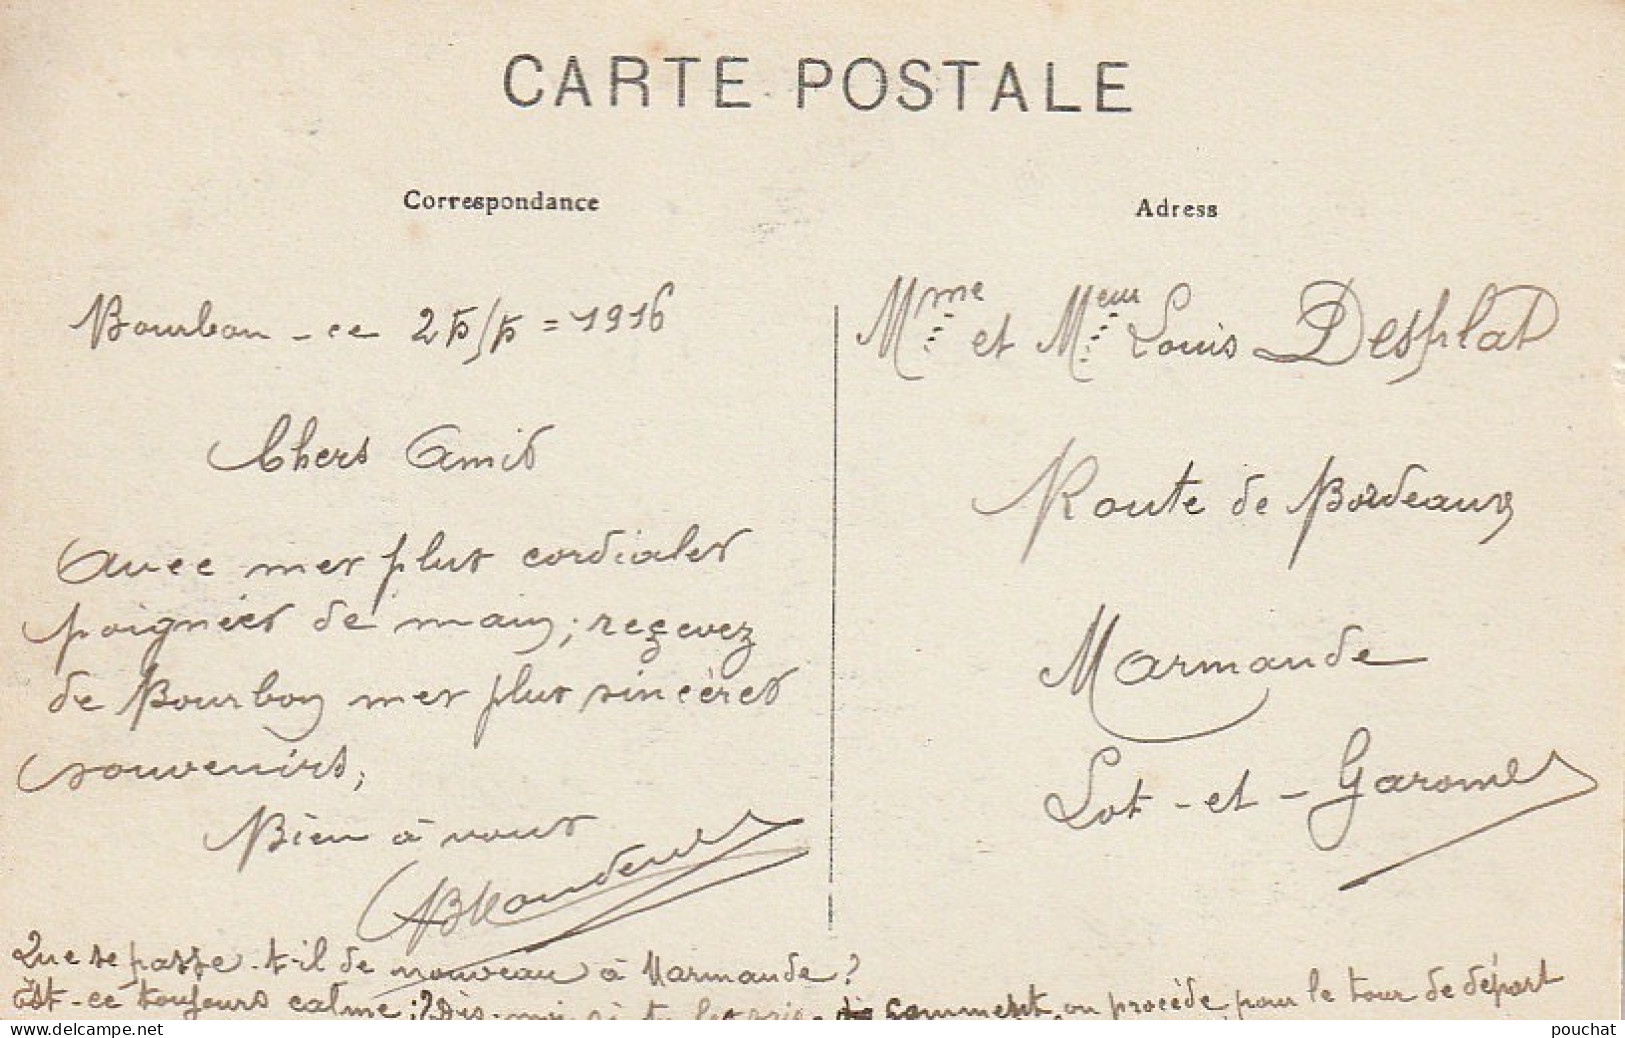 CARTE POSTALE
Correspondance
Bourbon - ce 25/5 = 1916
Chers Amis
Avec mes plus cordiales
poignées de main; reçevez
de Bourbon mes plus sincères
souvenirs,
Bien à vous
Que se passe-t-il de nouveau à Marmande?
Est-ce toujours calme;? Dis-moi si tu comment on procède pour le tour de départ
Adress
Mme et Meur Louis Desplat
Route de Bordeaux
Marmande
Lot-et-Garonne
delcampe.net
pouchat